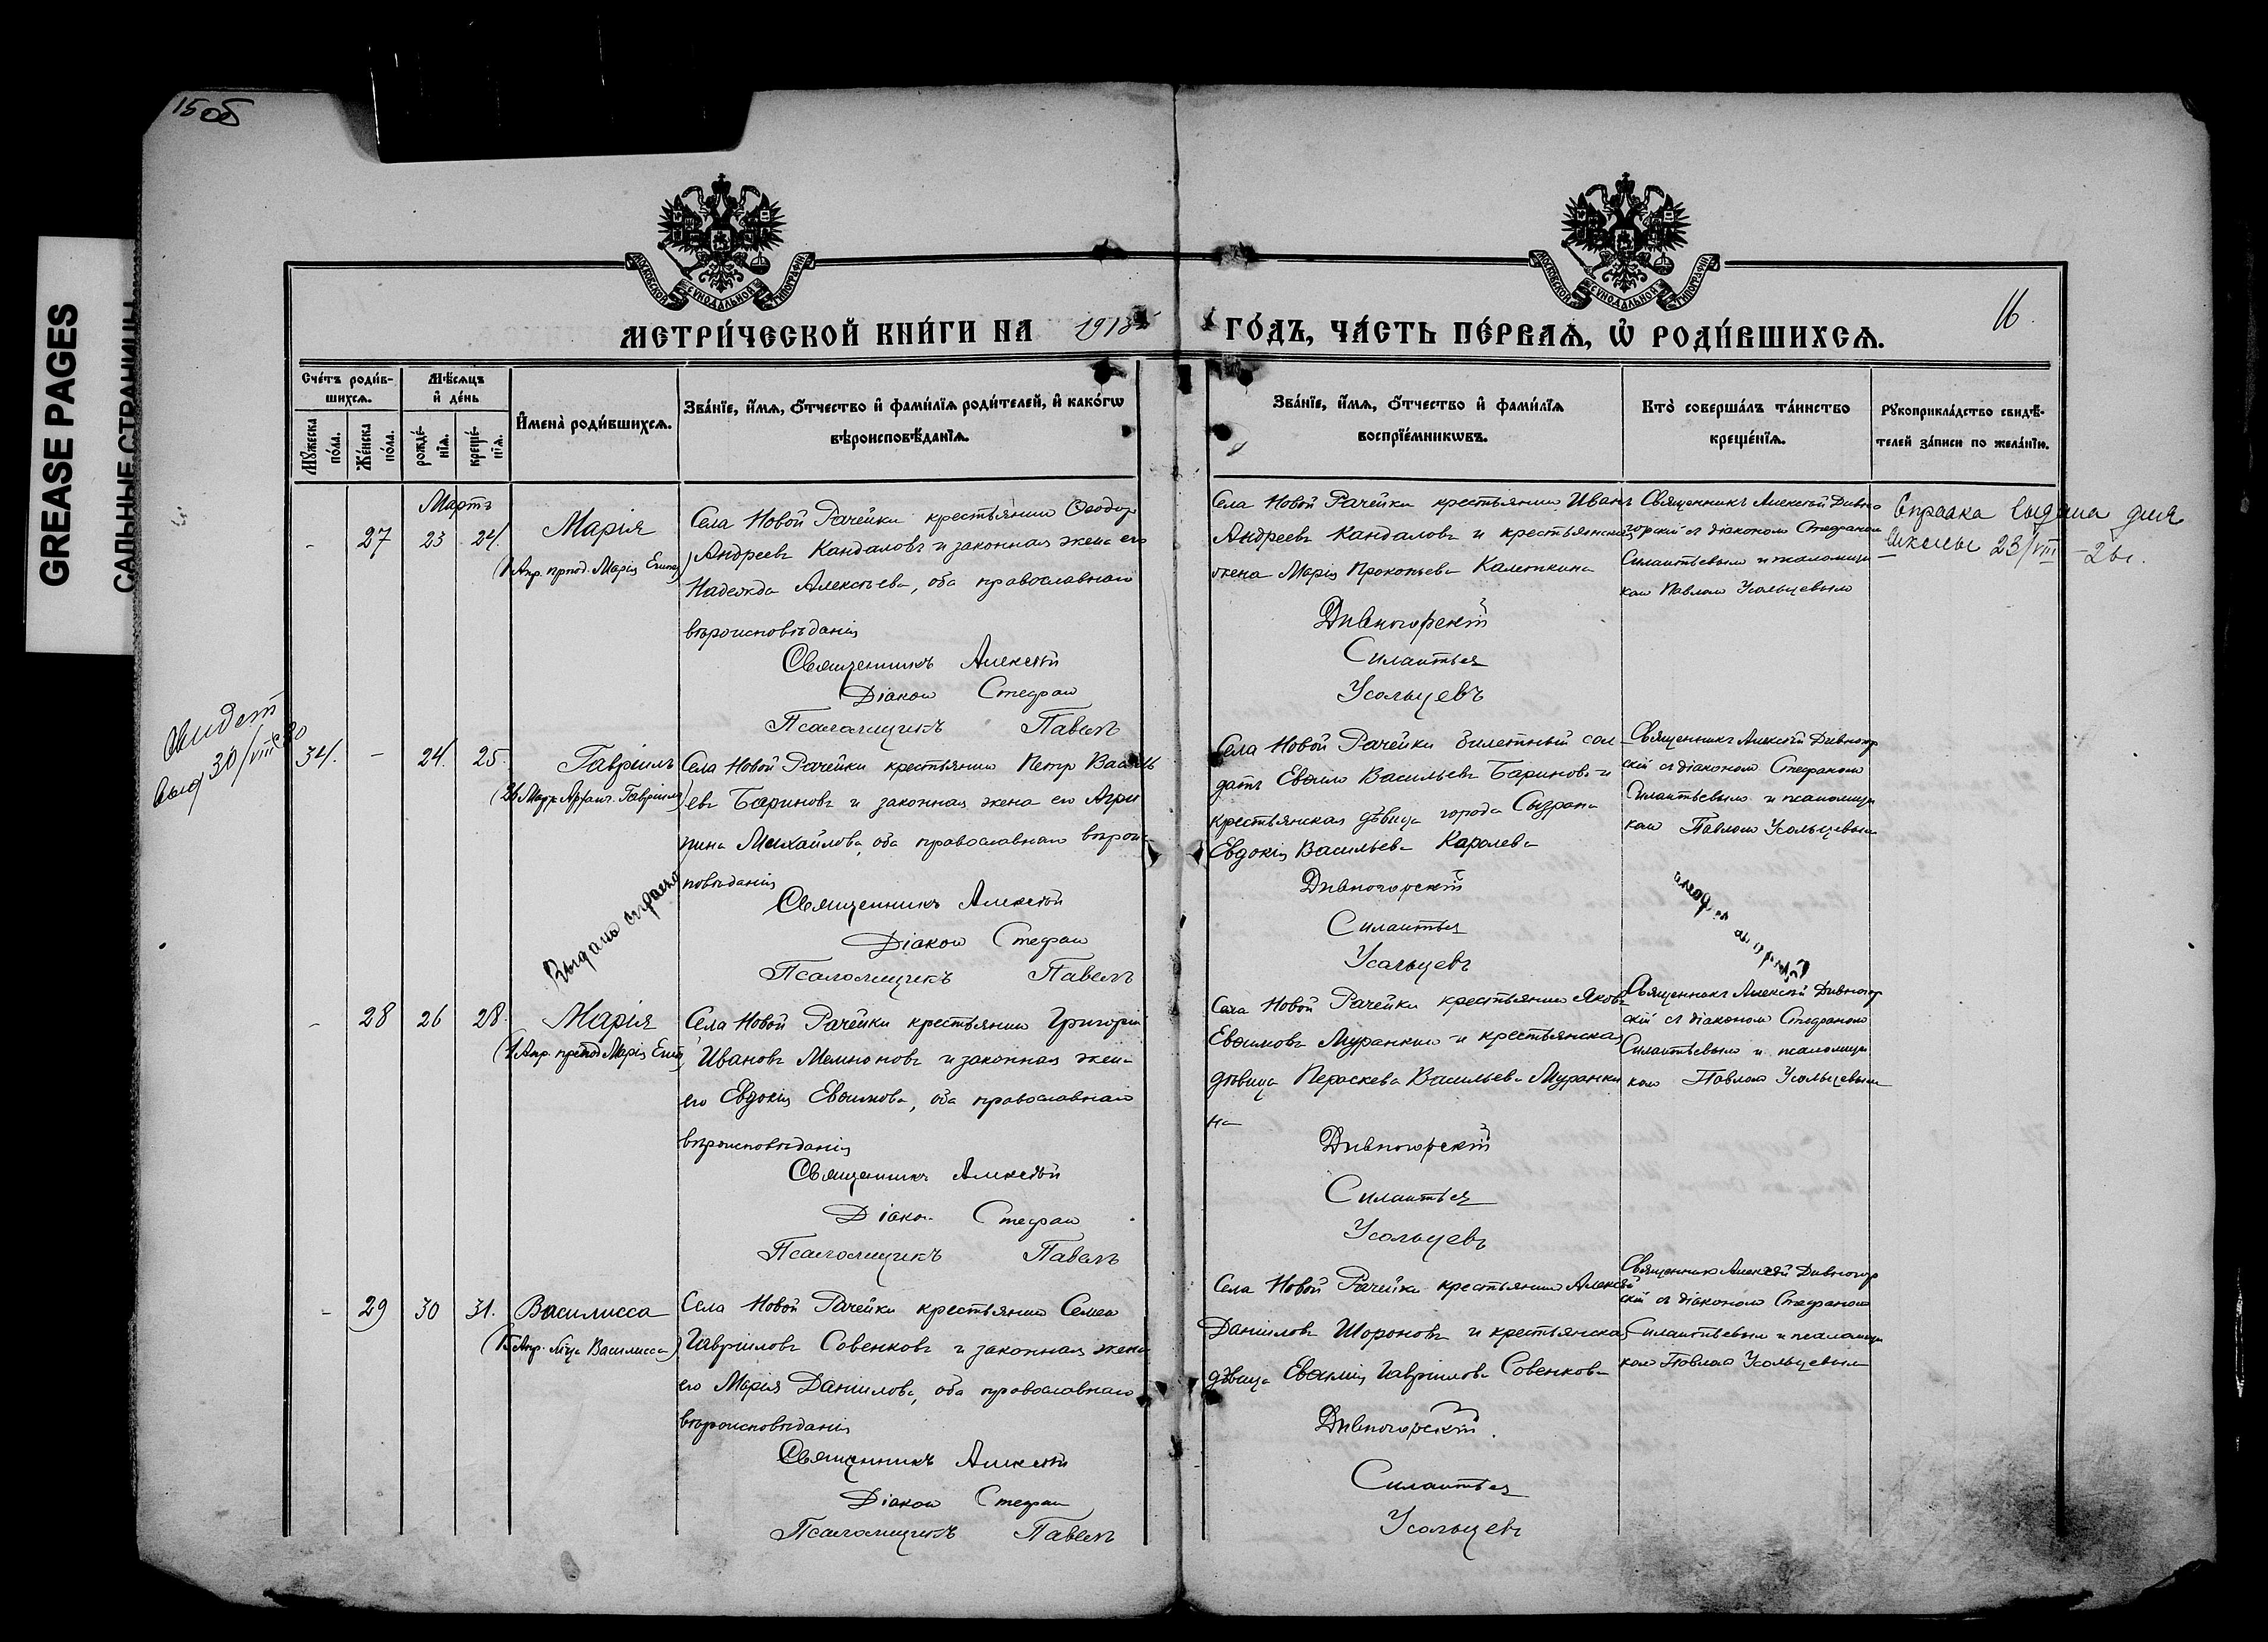 15 об
GREASE PAGES
САЛЬНЫЕ СТРАНИЦЫ
МОСКОВСКОЙ СУНОДАЛЬНОЙ ТИПОГРАФІИ
МОСКОВСКОЙ СУНОДАЛЬНОЙ ТИПОГРАФІИ
МЕТРИ́ЧЕСКОЙ КНИ́ГИ НА 1913
ГО́ДЪ, ЧА́СТЬ ПЕ́РВАѦ, Ѽ РОДИ́ВШИХСѦ.
16
Сче́тъ роди́в-
шихсѧ.
Мѣ́сѧцъ
и҆ де́нь
Мꙋ́жеска
по́ла.
Же́нска
по́ла.
рожде́-
нїѧ.
креще́-
нїѧ.
И҆мена̀ роди́вшихсѧ.
Зва́нїе, и҆́мѧ, ѻ҆́тчество и҆ фами́лїѧ роди́телей, и҆ како́гѡ
вѣроисповѣ́данїѧ.
Зва́нїе, и҆́мѧ, ѻ҆́тчество и҆ фами́лїѧ
воспрїе́мникѡвъ.
Кто̀ соверша́лъ та́инство
креще́нїѧ.
Рꙋкоприкла́дство свидѣ́-
телей за́писи по жела́нїю.
Мартъ
- 27 23 24. Марія
(1 Апр. препод. Марія Егип.)
Села Новой Рачейки крестьянин Ѳеодор
Андреевъ Кандаловъ и законная жена его
Надежда Алексѣева, оба православнаго
вѣроисповѣданія
Священникъ Алексѣй
Діакон Стефан
Псаломщикъ Павелъ
Села Новой Рачейки крестьянин Иванъ
Андреевъ Кандаловъ и крестьянская
жена Марія Прокопьева Калеткина
Дивногорскій
Силантьев
Усольцевъ
Священникъ Алексѣй Дивно
горскій съ діаконом Стефаном
Силантьевым и псаломщи
ком Павлом Усольцевым
Справка выдана для
школы 23/VIII-26г.
Свидет
выд 30/VIII 30
34. - 24. 25. Гавріилъ
(26 Мар. Архан. Гавріила)
Села Новой Рачейки крестьянин Петр Василь
евъ Бариновъ и законная жена его Агри
пина Михайлова, оба православнаго вѣроис
повѣданія
Священникъ Алексѣй
Діакон Стефан
Псаломщикъ Павелъ
Выдана справка
Села Новой Рачейки билетный сол
датъ Евѳим Васильевъ Бариновъ и
крестьянская дѣвица города Сызрана
Евдокія Васильева Каролева
Дивногорскій
Силантьев
Усольцевъ
Священникъ Алексѣй Дивногор
скій съ діаконом Стефаном
Силантьевым и псаломщи
ком Павлом Усольцевым
- 28 26 28. Марія
(1 Апр. препод Марія Егип.)
Села Новой Рачейки крестьянин Григорій
Ивановъ Мемноновъ и законная жена
его Евдокія Евѳимова, оба православнаго
вѣроисповѣданія
Священникъ Алексѣй
Діакон Стефан
Псаломщикъ Павелъ
Села Новой Рачейки крестьянин Яковъ
Евѳимовъ Муранкин и крестьянская
дѣвица Параскева Васильева Муранки
на
Дивногорскій
Силантьев
Усольцевъ
Священникъ Алексѣй Дивногор
скій съ діаконом Стефаном
Силантьевым и псаломщи
ком Павлом Усольцевым
- 29 30 31. Василисса
(15 Апр. Василисса)
Села Новой Рачейки крестьянин Семен
Гавріиловъ Совенковъ и законная жена
его Марія Даниилова, оба православнаго
вѣроисповѣданія
Священникъ Алексѣй
Діакон Стефан
Псаломщикъ Павелъ
Села Новой Рачейки крестьянин Алексѣй
Данииловъ Шороновъ и крестьянская
дѣвица Евѳимія Гавріилова Совенкова
Дивногорскій
Силантьев
Усольцевъ
Священник Алексѣй Дивногор
скій съ діаконом Стефаном
Силантьевым и псаломщи
ком Павлом Усольцевым